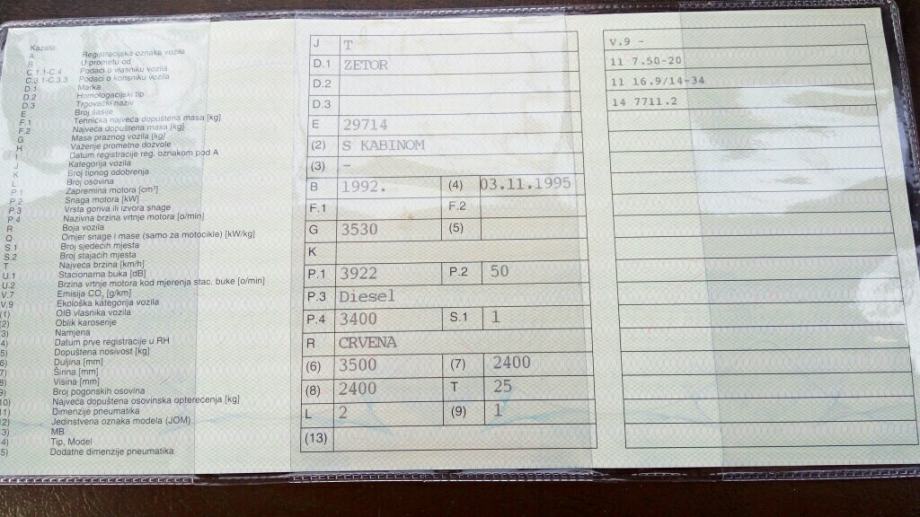 Kazalo
A Registracijska oznaka vozila
B U prometu od
C.1.1-C.4 Podaci o vlasniku vozila
C.3.1-C.3.3 Podaci o korisniku vozila
D.1 Marka
D.2 Homologacijski tip
D.3 Trgovački naziv
E Broj šasije
F.1 Tehnička najveća dopuštena masa [kg]
F.2 Najveća dopuštena masa [kg]
G Masa praznog vozila [kg]
H Važenje prometne dozvole
I Datum registracije reg. oznakom pod A
J Kategorija vozila
K Broj tipnog odobrenja
L Broj osovina
P.1 Zapremina motora [cm³]
P.2 Snaga motora [kW]
P.3 Vrsta goriva ili izvora snage
P.4 Nazivna brzina vrtnje motora [o/min]
R Boja vozila
Q Omjer snage i mase (samo za motocikle) [kW/kg]
S.1 Broj sjedećih mjesta
S.2 Broj stajaćih mjesta
T Najveća brzina [km/h]
U.1 Stacionarna buka [dB]
U.2 Brzina vrtnje motora kod mjerenja stac. buke [o/min]
V.7 Emisija CO₂ [g/km]
V.9 Ekološka kategorija vozila
(1) OIB vlasnika vozila
(2) Oblik karoserije
3) Namjena
4) Datum prve registracije u RH
5) Dopuštena nosivost [kg]
6) Duljina [mm]
7) Širina [mm]
8) Visina [mm]
9) Broj pogonskih osovina
10) Najveća dopuštena osovinska opterećenja [kg]
11) Dimenzije pneumatika
12) Jedinstvena oznaka modela (JOM)
3) MB
4) Tip, Model
5) Dodatne dimenzije pneumatika
J T
D.1 ZETOR
D.2
D.3
E 29714
(2) S KABINOM
(3) -
B 1992. (4) 03.11.1995
F.1 F.2
G 3530 (5)
K
P.1 3922 P.2 50
P.3 Diesel
P.4 3400 S.1 1
R CRVENA
(6) 3500 (7) 2400
(8) 2400 T 25
L 2 (9) 1
(13)
V.9 -
11 7.50-20
11 16.9/14-34
14 7711.2